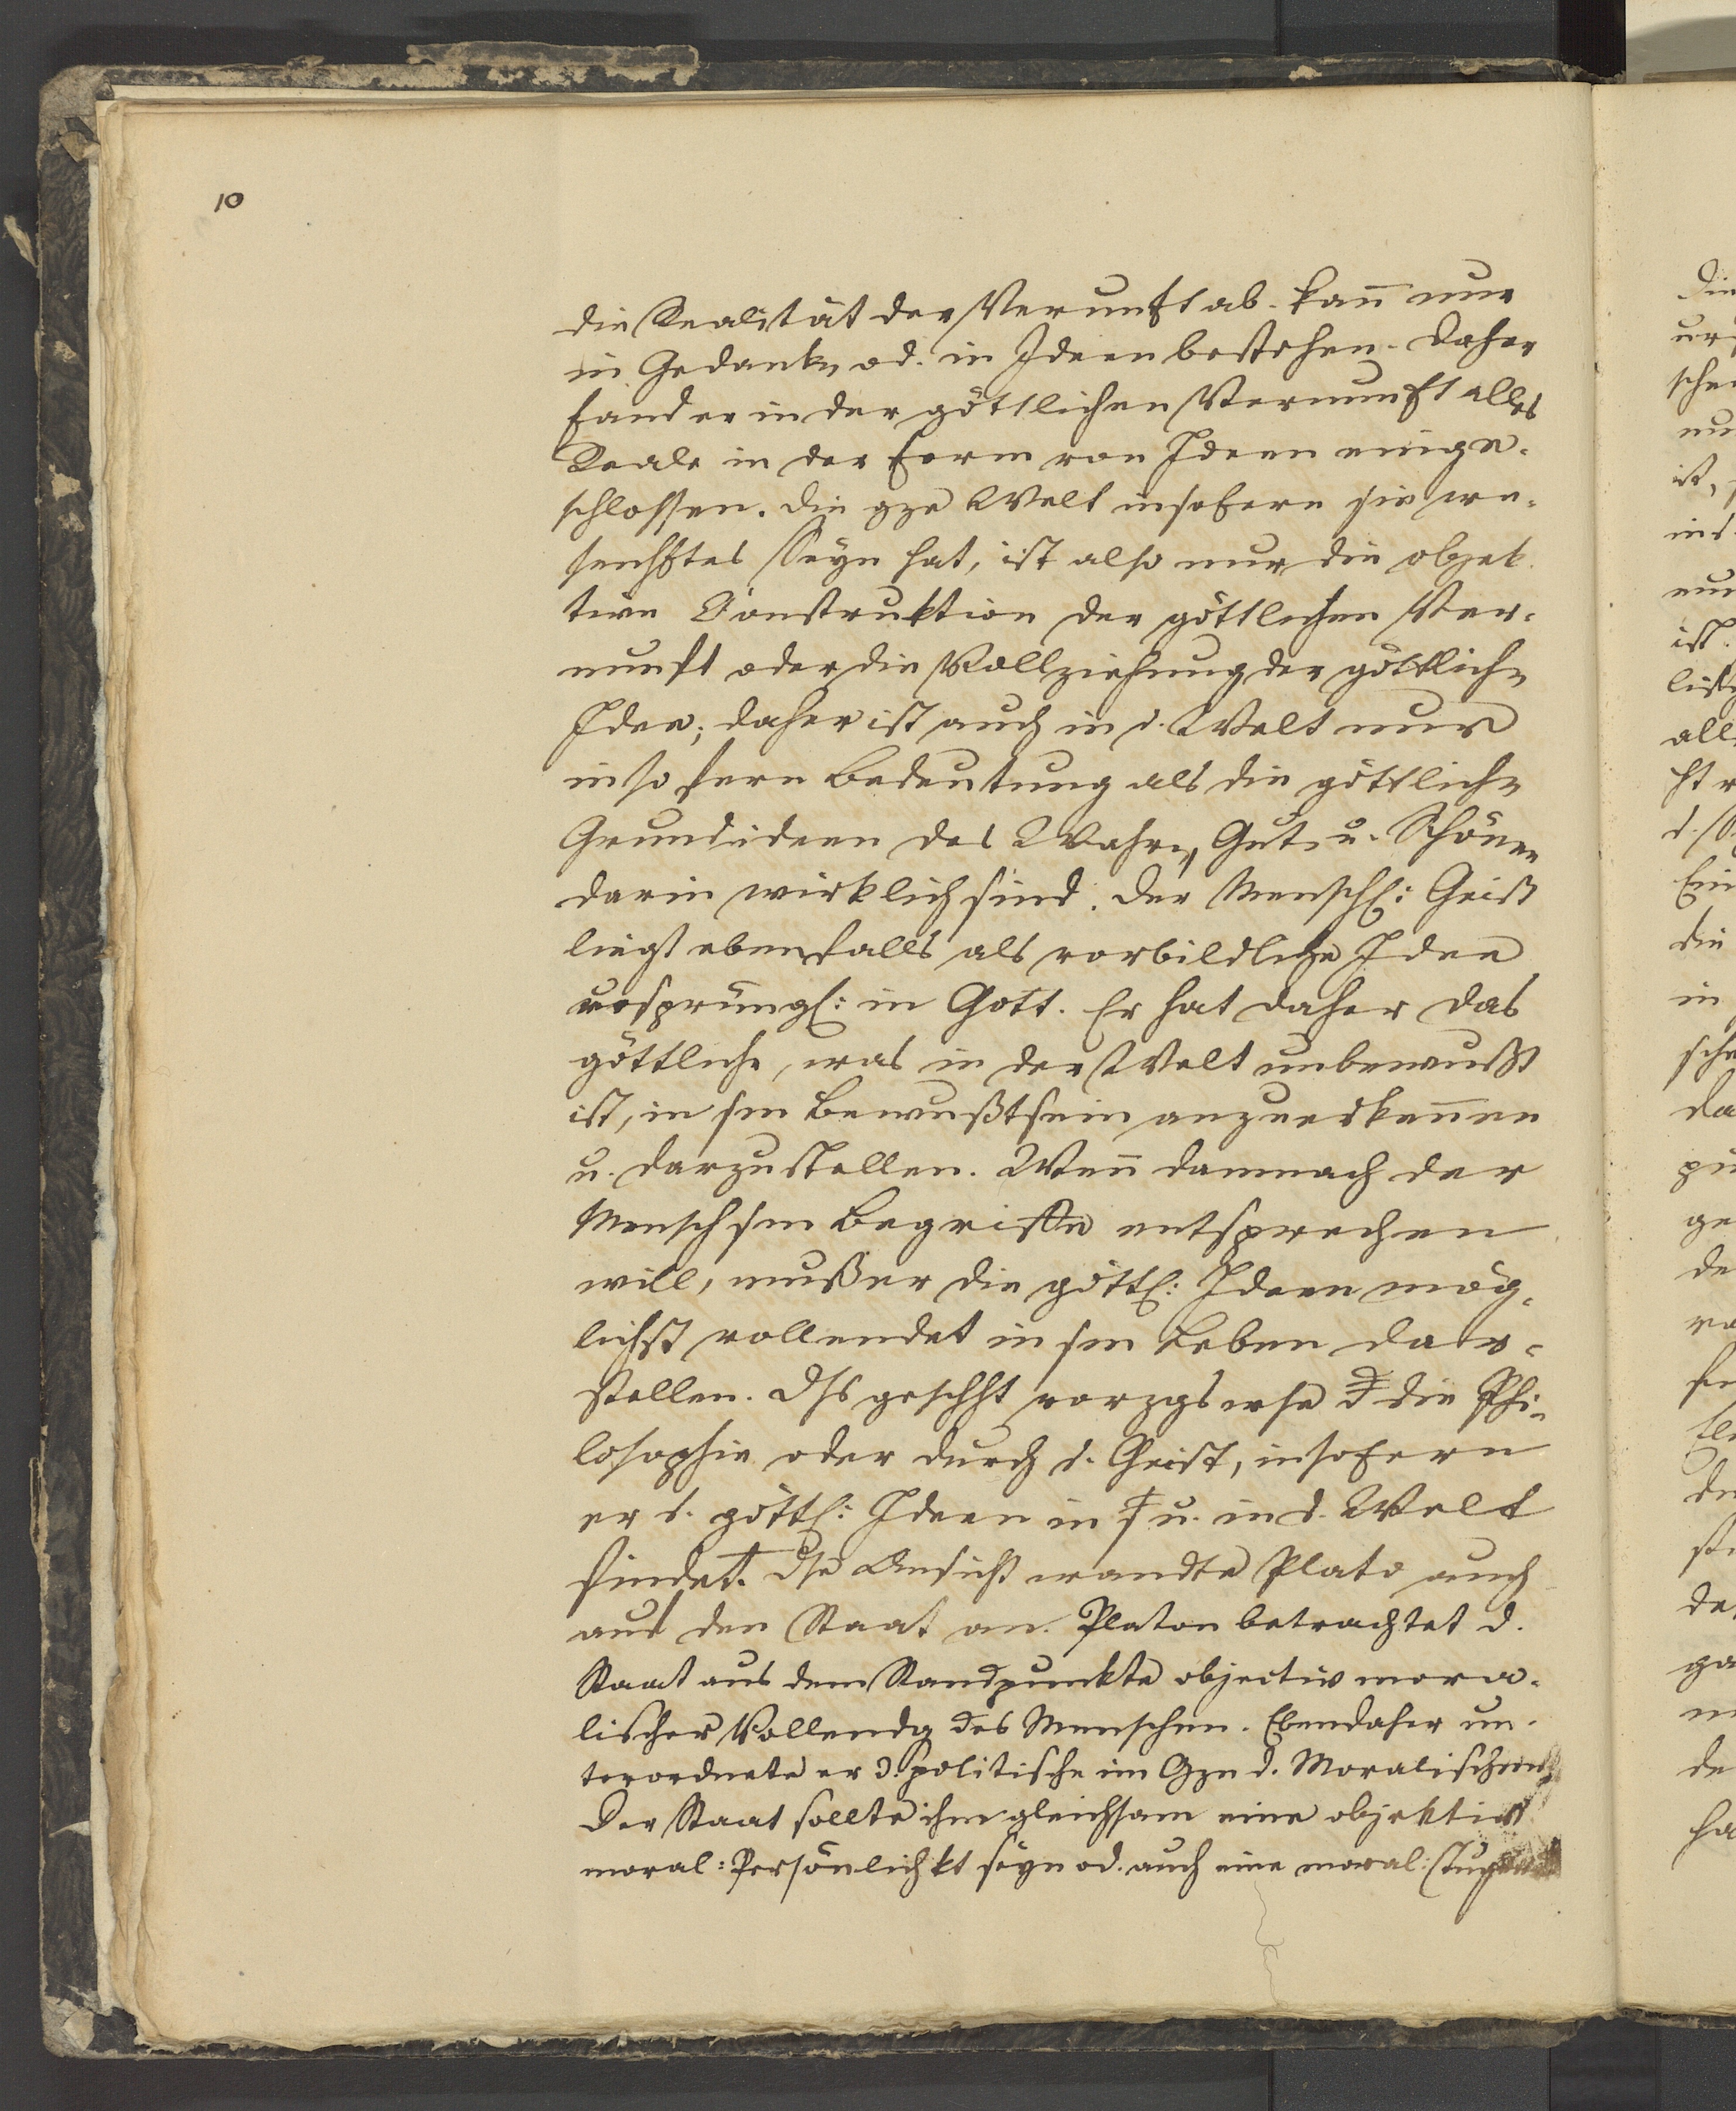 10
die Realität der Vernunft ab. kan̄ nur
in Gedankn od. in Ideen bestehen. Daher
fand er in der göttlichen Vernunft alles
Reale in der Form von Ideen einge-
schlossen. Die gze Welt insofern sie we-
senhftes Seyn hat, ist also nur die objek-
tive Construktion der göttlichen Ver-
nunft oder die Vollziehung der göttlichn
Idee; daher ist auch in d. Welt nur
in so fern Bedeutung als die göttlichn
Grundideen des Wahrn, Gutn u. Schönen
darin wirklich sind. Der Menschl: Geist
liegt ebenfalls als vorbildliche Idee
ursprüngl: in Gott. Er hat daher das
göttliche, was in der Welt unbewußt
ist, in sm Bewußtsein anzuerken̄en
u. darzustellen. Wen̄ damnach der
Mensch sm Begriffe entsprechen
will, muß er die göttl: Ideen mög-
lichst vollendet in sm Leben dar-
stellen. Dß geschht vorzgswse d die Phi-
losophie oder durch d. Geist, insofern
er d. göttl: Ideen in s u. in d. Welt
findet. Dse Ansicht wandte Plato auch
auf den Staat an. Platon betrachtet d.
Staat aus dem Standpunkte objectiv mora-
lischer Vollendg des Menschen. Ebendaher un-
terordnete er d. politische im Gzn d. Moralischen
Der Staat sollte ihm gleichsam eine objektive
moral: Persönlichkt seyn od. auch eine moral: